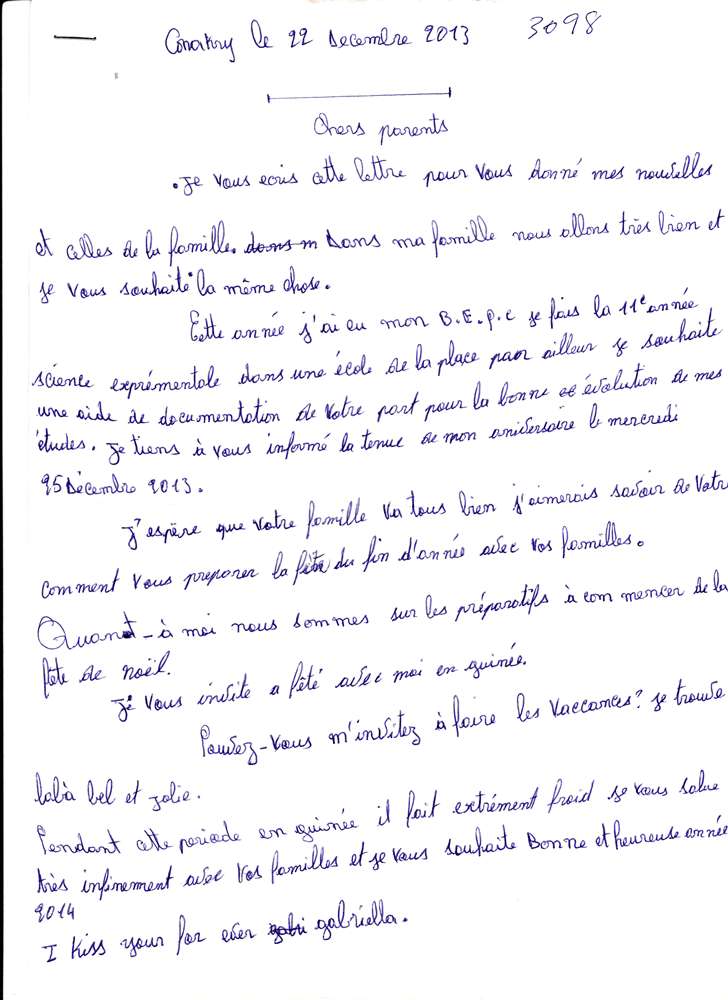 Conakry le 22 Decembre 2013 3098
Chers parents
.Je vous ecris cette lettre pour vous donné mes nouvelles
et celles de la famille. dans m Dans ma famille nous allons très bien et
je vous souhaite la même chose.
Cette année j'ai eu mon B.E.P.C je fais la 11e année
science exprémentale dans une école de la place par ailleur je souhaite
une aide de documentation de votre part pour la bonne évolution de mes
études. Je tiens à vous informé la tenue de mon aniversaire le mercredi
25 Décembre 2013.
J'espère que votre famille va tous bien j'aimerais savoir de Votre
comment vous preparer la fête du fin d'année avec vos familles.
Quant-à moi nous sommes sur les préparatifs à commencer de la
fête de noël.
Je vous invite a fêté avec moi en guinée.
Pouvez-vous m'invitez à faire les vaccances? je trouve
labà bel et jolie.
Pendant cette periode en guinée il fait extrément froid je vous salue
très infinement avec vos familles et je vous souhaite Bonne et heureuse année
2014
I kiss your for ever gabri gabriella.